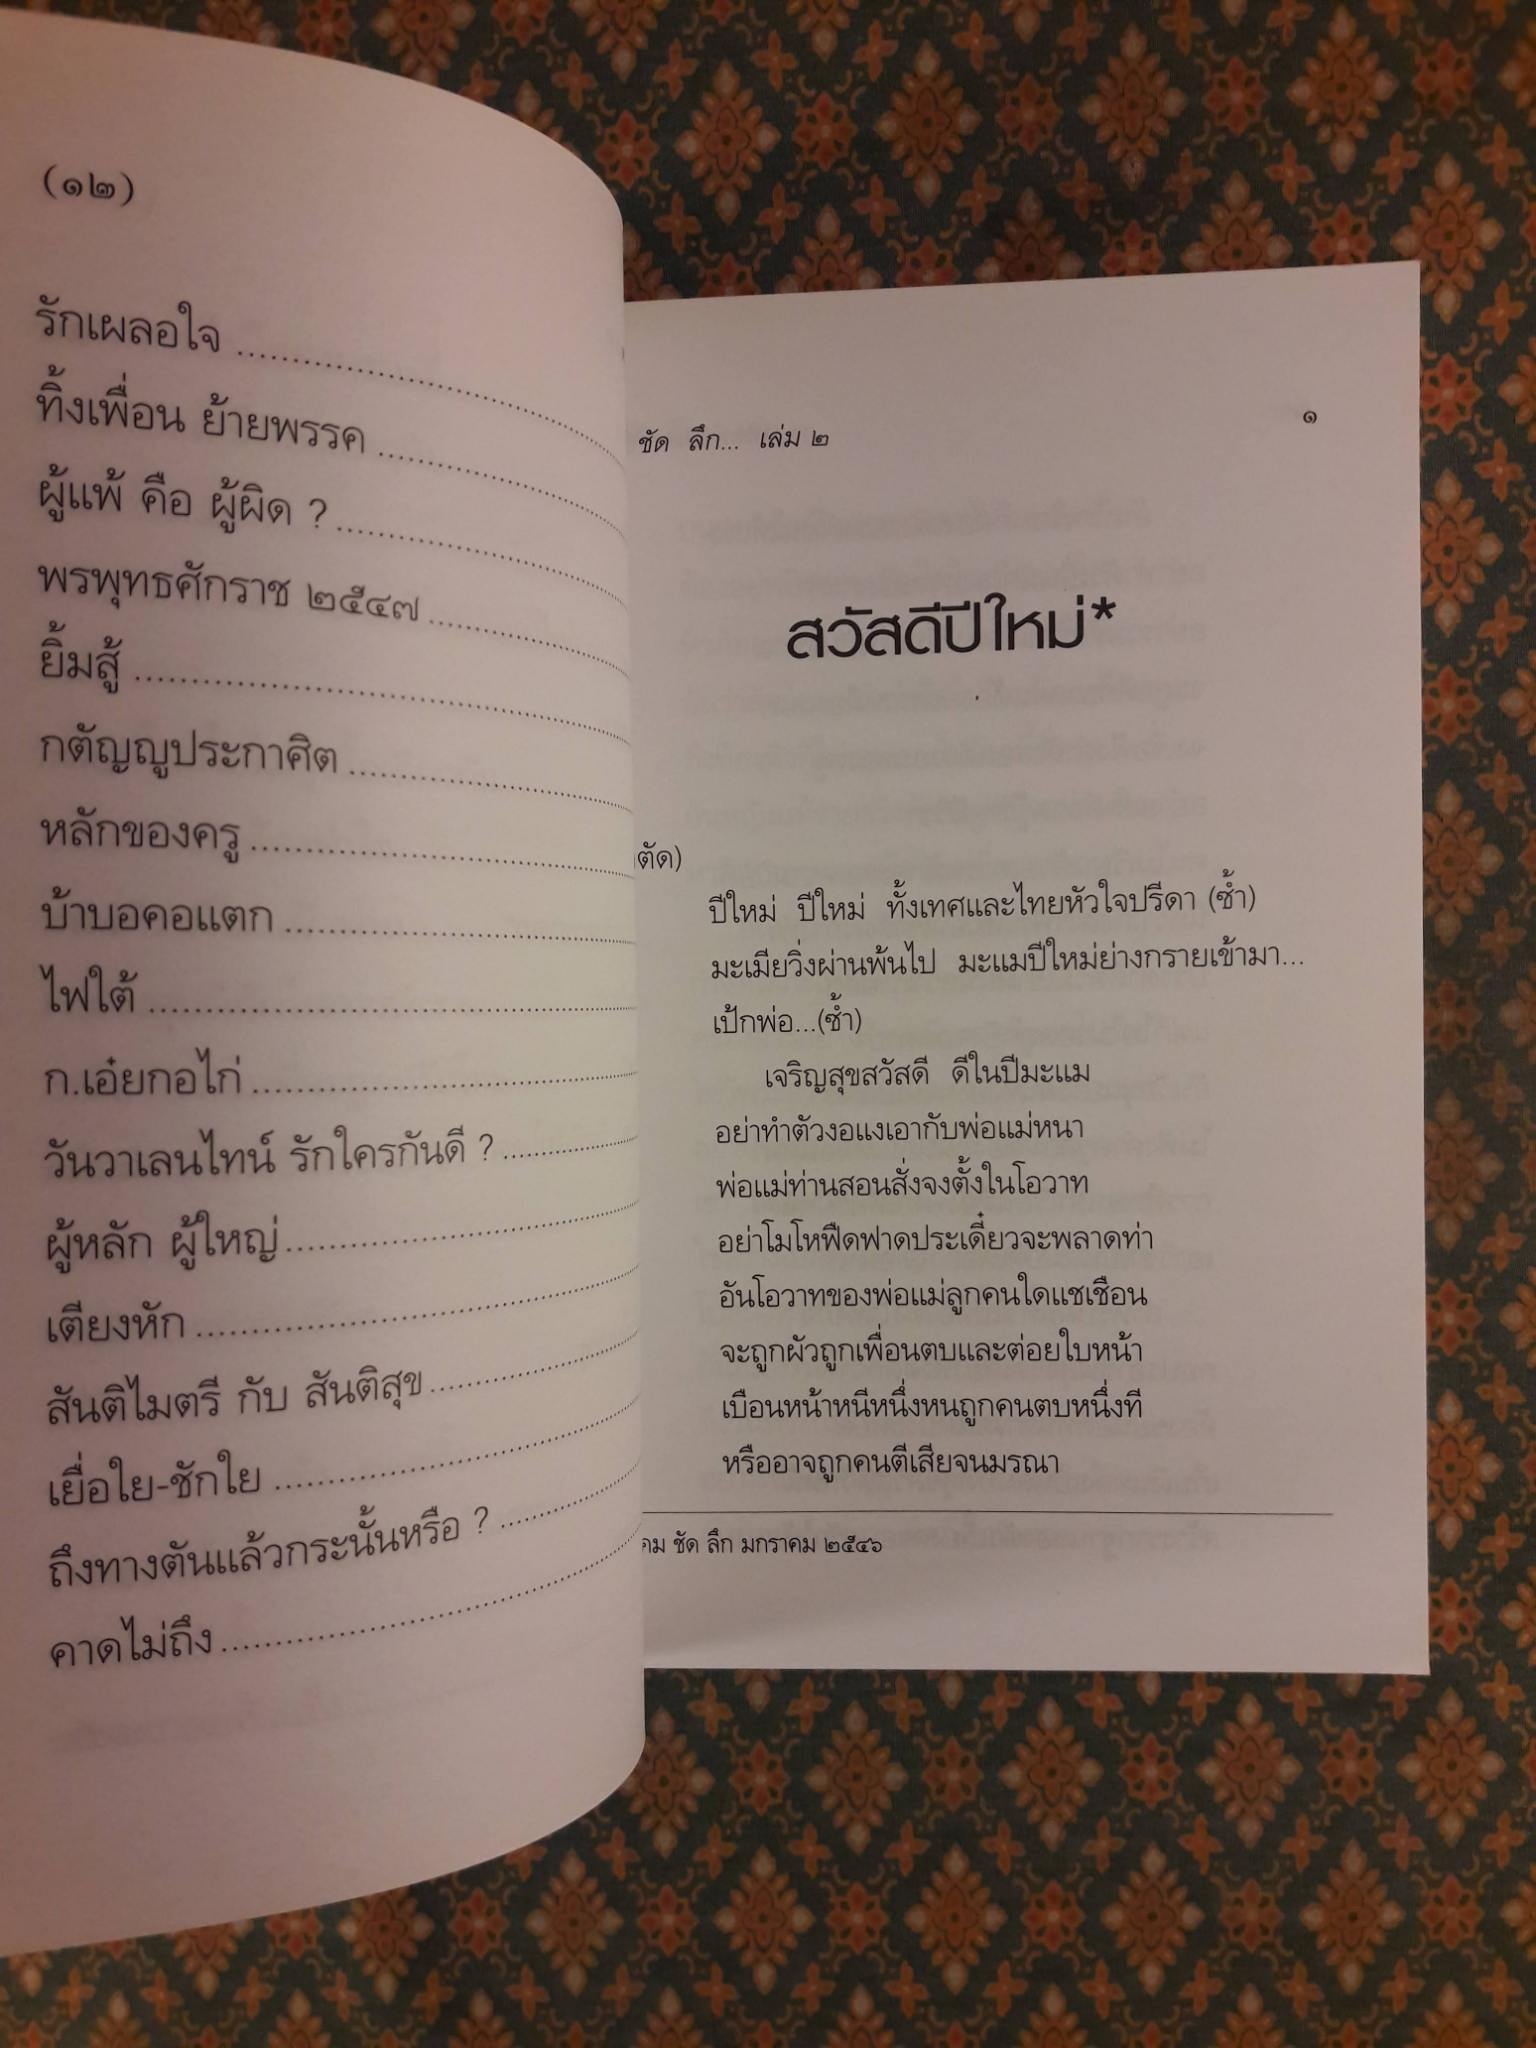 (๑๒)
รักเผลอใจ
ทิ้งเพื่อน ย้ายพรรค
ผู้แพ้ คือ ผู้ผิด ?
พรพุทธศักราช ๒๕๔๗
ยิ้มสู้
กตัญญูประกาศิต
หลักของครู
บ้าบอคอแตก
ไฟใต้
ก.เอ๋ยกอไก่
วันวาเลนไทน์ รักใครกันดี ?
ผู้หลัก ผู้ใหญ่
เตียงหัก
สันติไมตรี กับ สันติสุข
เยื่อใย-ชักใย
ถึงทางตันแล้วกระนั้นหรือ ?
คาดไม่ถึง
ชัด ลึก... เล่ม ๒
๑
สวัสดีปีใหม่*
ตัด)
ปีใหม่ ปีใหม่ ทั้งเทศและไทยหัวใจปรีดา (ซ้ำ)
มะเมียวิ่งผ่านพ้นไป มะแมปีใหม่ย่างกรายเข้ามา...
เป้กพ่อ...(ซ้ำ)
เจริญสุขสวัสดี ดีในปีมะแม
อย่าทำตัวงอแงเอากับพ่อแม่หนา
พ่อแม่ท่านสอนสั่งจงตั้งในโอวาท
อย่าโมโหฟืดฟาดประเดี๋ยวจะพลาดท่า
อันโอวาทของพ่อแม่ลูกคนใดแชเชือน
จะถูกผัวถูกเพื่อนตบและต่อยใบหน้า
เบือนหน้าหนีหนึ่งหนถูกคนตบหนึ่งที
หรืออาจถูกคนตีเสียจนมรณา
คม ชัด ลึก มกราคม ๒๕๔๖